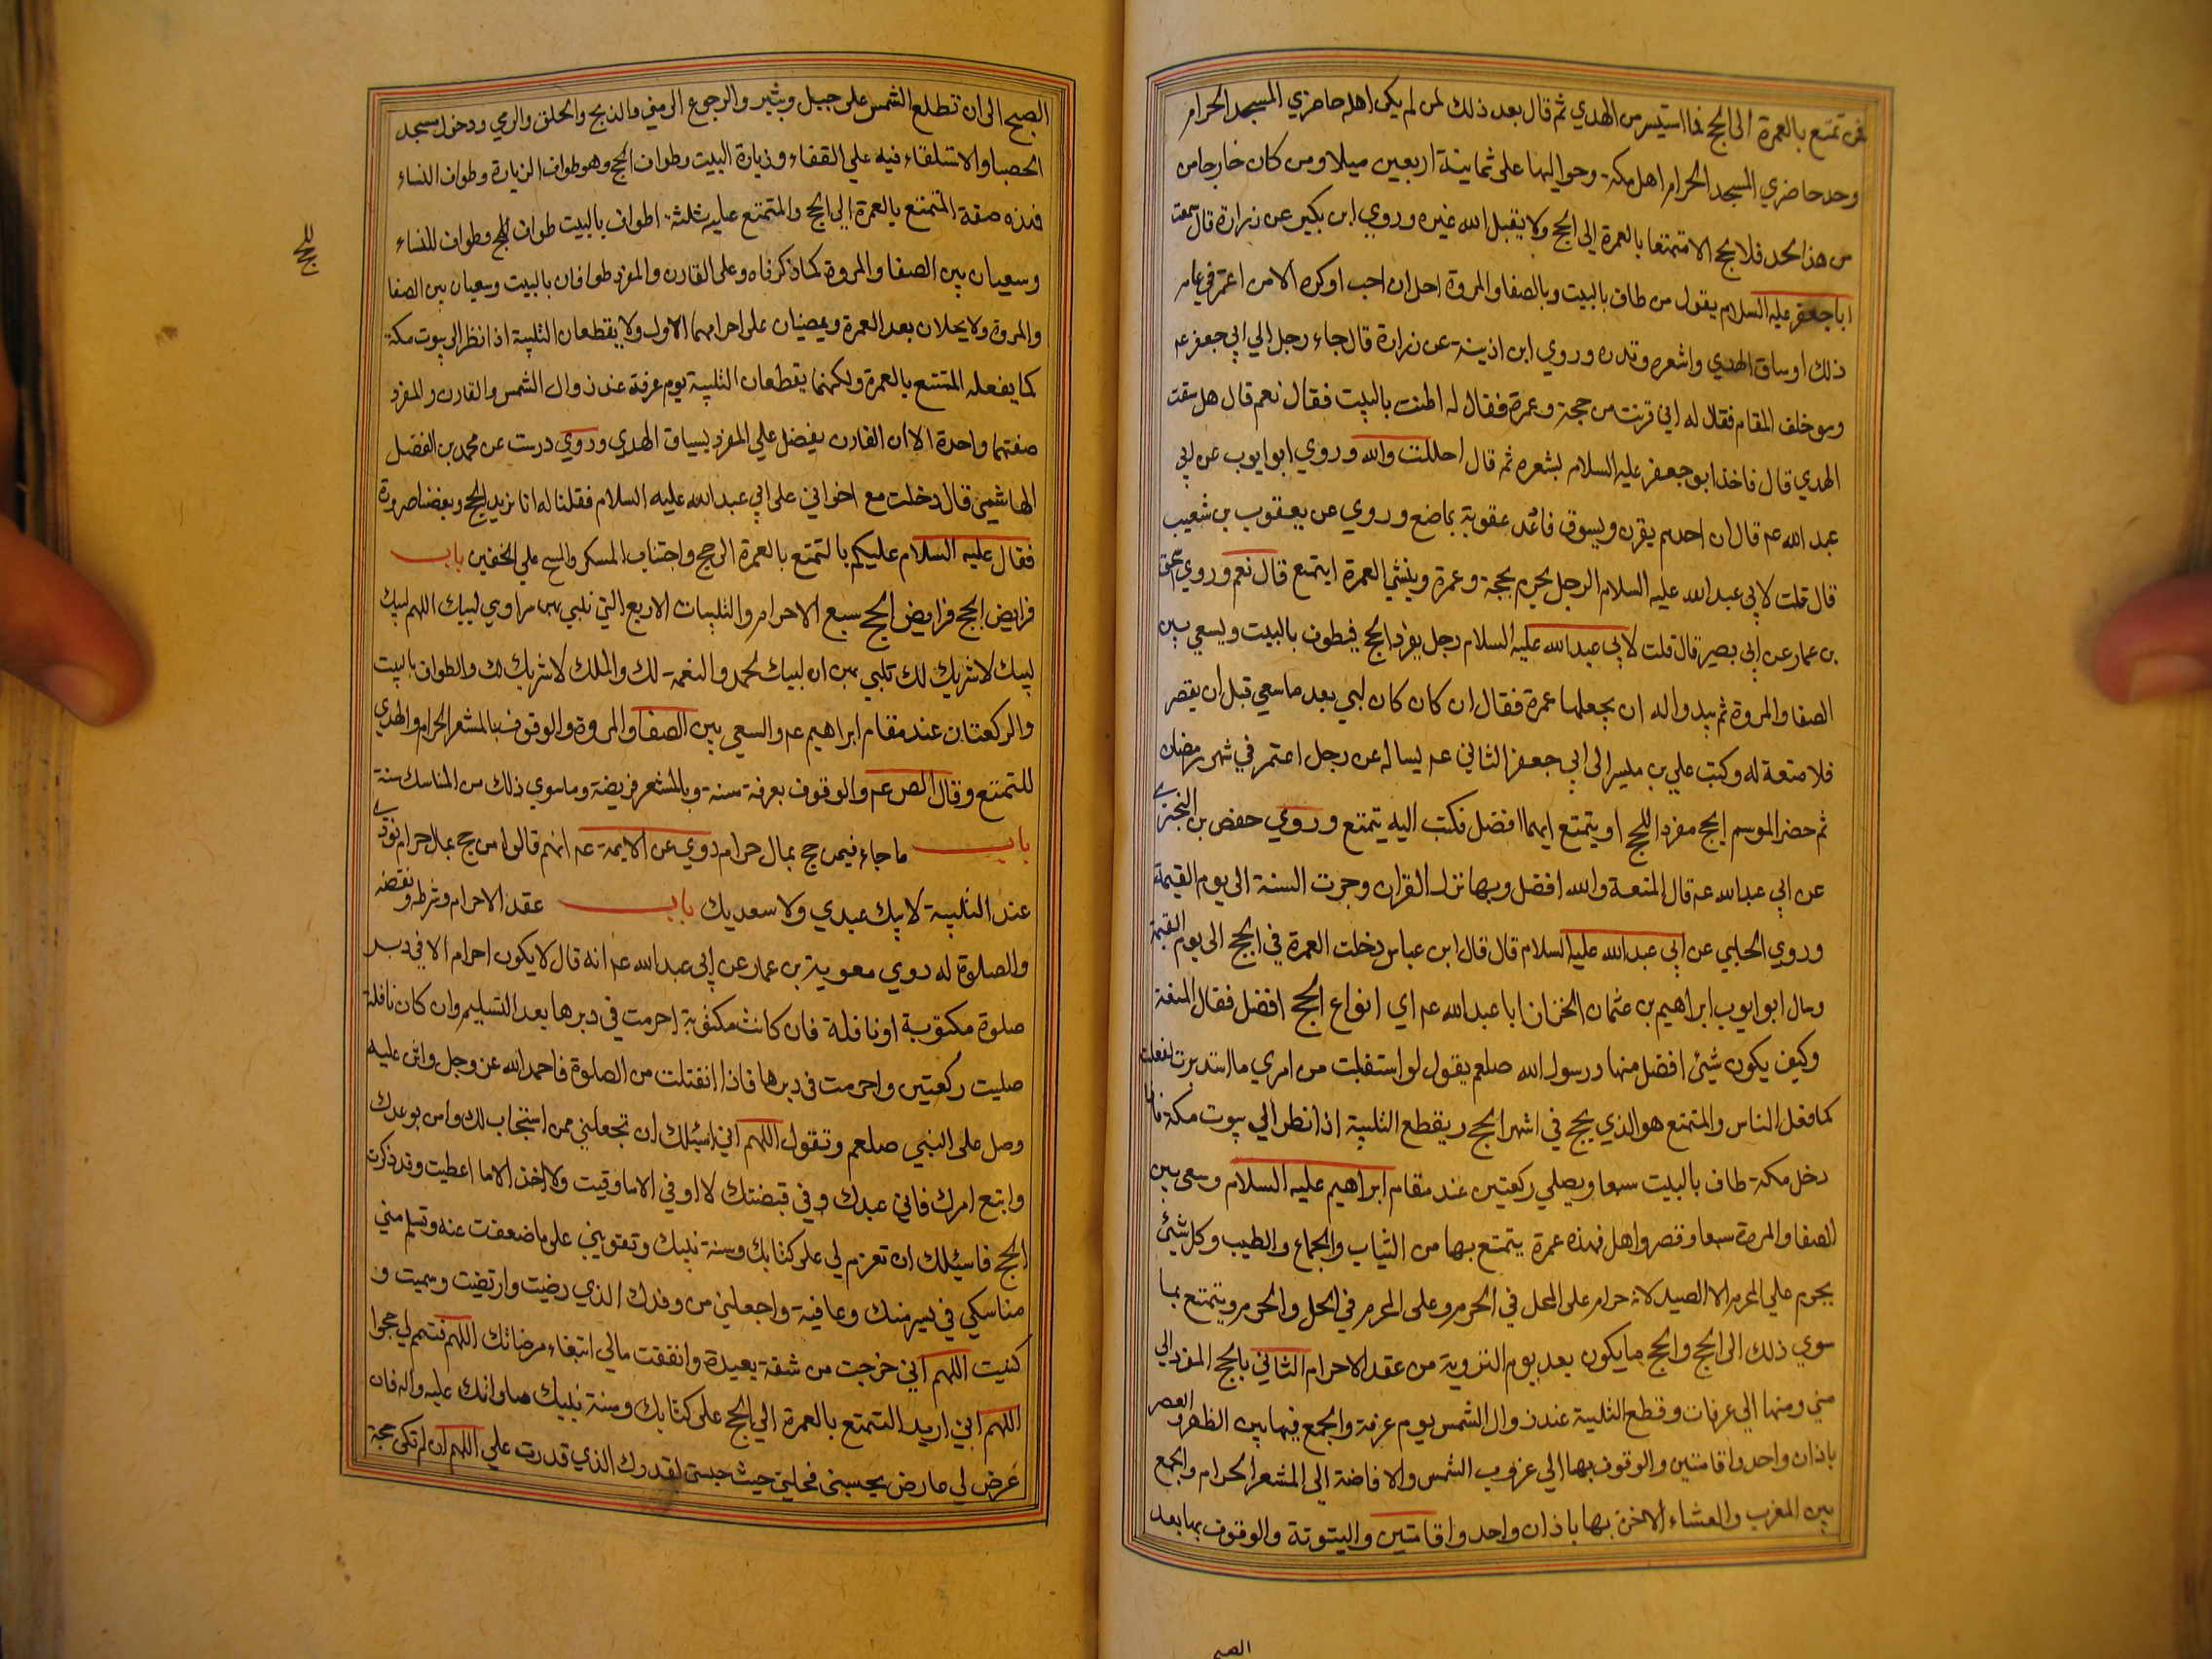 فمن تمتع بالعمرة الى الحج فما استيسر من الهدي ثم قال بعد ذلك لمن لم يكن اهله حاضري المسجد الحرام
وحد حاضري المسجد الحرام اهل مكة وحواليها على ثمانية اربعين ميلا ومن كان خارجا من
من هذا الحد فلا يحج الا متمتعا بالعمرة الى الحج ولا يقبل الله غيره وروي ابن بكير عن زرارة قال سمعت
ابا جعفر عليه السلام يقول من طاف بالبيت وبالصفا والمروة احل ان احب او كره الا من اعتمر في عامه
ذلك او ساق الهدي واشعره وقلده وروي ابن اذينة عن زرارة قال جاء رجل الي ابي جعفر عم
وهو خلف المقام فقال له اني قرنت من حجة وعمرة فقال له اطفت بالبيت فقال نعم قال هل سقت
الهدي قال فاخذ ابو جعفر عليه السلام بشعره ثم قال احللت والله وروي ابو ايوب عن ابي
عبد الله عم قال ان احدهم يقرن ويسوق فادعه عقوبة بما صنع وروي عن يعقوب بن شعيب
قال قلت لابي عبد الله عليه السلام الرجل يحرم بحجة وعمرة وينشي العمرة ايتمتع قال نعم وروي اسحق
بن عمار عن ابي بصير قال قلت لابي عبد الله عليه السلام رجل يفرد الحج فيطوف بالبيت ويسعي بين
الصفا والمروة ثم يبدوا له ان يجعلها عمرة فقال ان كان كان لبي بعد ما سعي قبل ان يقصر
فلا متعة له وكتب علي بن ميسر الى ابي جعفر الثاني عم يساله عن رجل اعتمر في شهر رمضان
ثم حضر الموسم ايحج مفرد اللحج او يتمتع ايهما افضل فكتب اليه يتمتع وروي حفص بن البختري
عن ابي عبد الله عم قال المتعة والله افضل وبها نزل القران وجرت السنة الى يوم القيمة
وروي الحلبي عن ابي عبد الله عليه السلام قال قال ابن عباس دخلت العمرة في الحج الى يوم القيمة
وسال ابو ايوب ابراهيم بن عثمان الخزاز ابا عبد الله عم اي انواع الحج افضل فقال المتعة
وكيف يكون شيئ افضل منها ورسول الله صلعم يقول لو استقبلت من امري ما استدبرت لفعلت
كما فعل الناس والمتمتع هو الذي يحج في اشهر الحج ويقطع التلبية اذا نظر الي بيوت مكة فاذا
دخل مكة طاف بالبيت سبعا ويصلي ركعتين عند مقام ابراهيم عليه السلام وسعى بين
الصفا والمروة سبعا وقصر واهل فهذه عمرة يتمتع بها من الثياب والجماع والطيب وكل شيئ
يحرم علي المحرم الا الصيد لانه حرام على المحل في الحرم وعلى المحرم في الحل والحرم ويتمتع بما
سوي ذلك الى الحج والحج ما يكون بعد يوم التروية من عقد الاحرام الثاني بالحج المفرد الي
مني ومنها الي عرفات وقطع التلبية عند زوال الشمس يوم عرفة والجمع فيها بين الظهر والعصر
باذان واحد واقامتين والوقوف بها الي غروب الشمس والافاضة الي المشعر الحرام والجمع
بين المغرب والعشاء الاخرة بها باذان واحد واقامتين والبيتوتة والوقوف بها بعد
الصبح
الصبح الى ان تطلع الشمس على جبل وبثير والرجوع الى مني والذبح والحلق والرمي ودخول مسجد
الحصبا والاستلقاء فيه علي القفاء وزيارة البيت وطواف الحج وهو طواف الزيارة وطواف النساء
فهذه صفة المتمتع بالعمرة الي الحج والمتمتع عليه ثلثة اطواف بالبيت طواف للحج وطواف للنساء
للحج
وسعيان بين الصفا والمروة كما ذكرناه وعلى القارن والمفرد طوافان بالبيت وسعيان بين الصفا
والمروة ولا يحلان بعد العمرة ويمضيان على احرامهما الاول ولا يقطعان التلبية اذا نظر الى بيوت مكة
كما يفعله المتمتع بالعمرة ولكنهما يقطعان التلبية يوم عرفة عند زوال الشمس والقارن والمفرد
صفتهما واحدة الا ان القارن يفضل علي المفرد بسياق الهدي وروي درست عن محمد بن الفضل
الهاشمي قال دخلت مع اخواني على ابي عبد الله عليه السلام فقلنا له انا نريد الحج وبعضنا صرورة
فقال عليه السلام عليكم بالتمتع بالعمرة الى حج واجتناب المسكر والمسح علي الخفين باب
فرايض الحج فرايض الحج سبع الاحرام والتلبيات الاربع التي تلبي بهن سرا وهي لبيك اللهم لبيك
لبيك لا شريك لك تلبي بهن ان لبيك الحمد والنعمة لك والملك لا شريك لك والطواف بالبيت
والركعتان عند مقام ابراهيم عم والسعي بين الصفا والمروة والوقوف بالمشعر الحرام والهدي
للتمتع وقال الص عم والوقوف بعرفة سنة وبالمشعر فريضة وما سوي ذلك من المناسك سنة
باب ما جاء فيمن حج بمال حرام روي عن الايمة عم انهم قالوا من حج بمال حرام نودي
عند التلبية لا لبيك عبدي ولا سعديك باب عقد الاحرام وشرطه ونقضه
والصلوة له روي معوية بن عمار عن ابي عبد الله عم انه قال لا يكون احرام الا في دبر
صلوة مكتوبة او نافلة فان كانت مكتوبة احرمت في دبرها بعد التسليم وان كان نافلة
صليت ركعتين واحرمت في دبرها فاذا انفتلت من الصلوة فاحمد الله عز وجل واثن عليه
وصل على النبي صلعم وتقول اللهم اني اسئلك ان تجعلني ممن استجاب لك وامن بوعدك
واتبع امرك فاني عبدك وفي قبضتك لا اوفي الا ما وقيت ولا اخذ الا ما اعطيت وقد ذكرت
الحج فاسئلك ان تعزم لي على كتابك وسنة نبيك وتقويني على ما ضعفت عنه وتسلم مني
مناسكي في يسر منك وعافية واجعلني من وفدك الذي رضيت وارتضيت وسميت و
كنيت اللهم اني خرجت من شقة بعيدة وانفقت مالي ابتغاء مرضاتك اللهم فتمم لي حجوا
اللهم اني اريد التمتع بالعمرة الي الحج على كتابك وسنة نبيك صلواتك عليه واله فان
عرض لي عارض يحبسني فحلني حيث حبستني لقدرك الذي قدرت علي اللهم ان لم تكن حجة